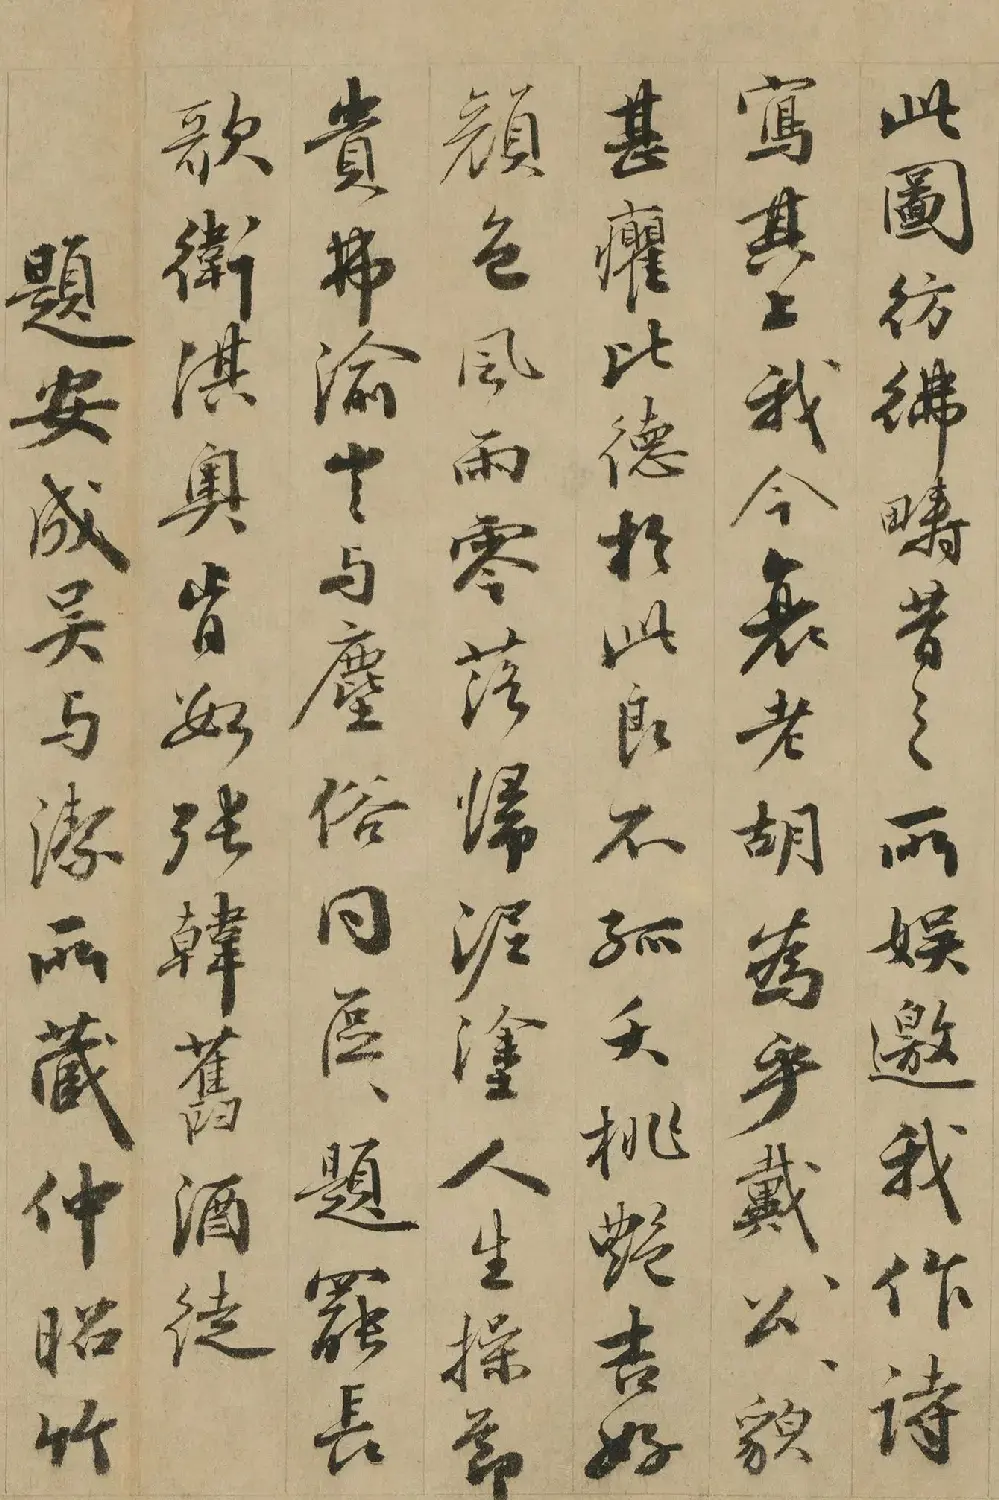 此圖彷彿疇昔之所娛邀我作詩
寫其上我今衰老胡為乎戴公公貌
甚癯比德於此良不孤夭桃艷杏好
顏色風雨零落歸泥塗人生操節
貴弗渝定與塵俗同區區題罷長
歌衛淇奧皆如張韓舊酒徒
題安成吳与潔所藏仲昭竹